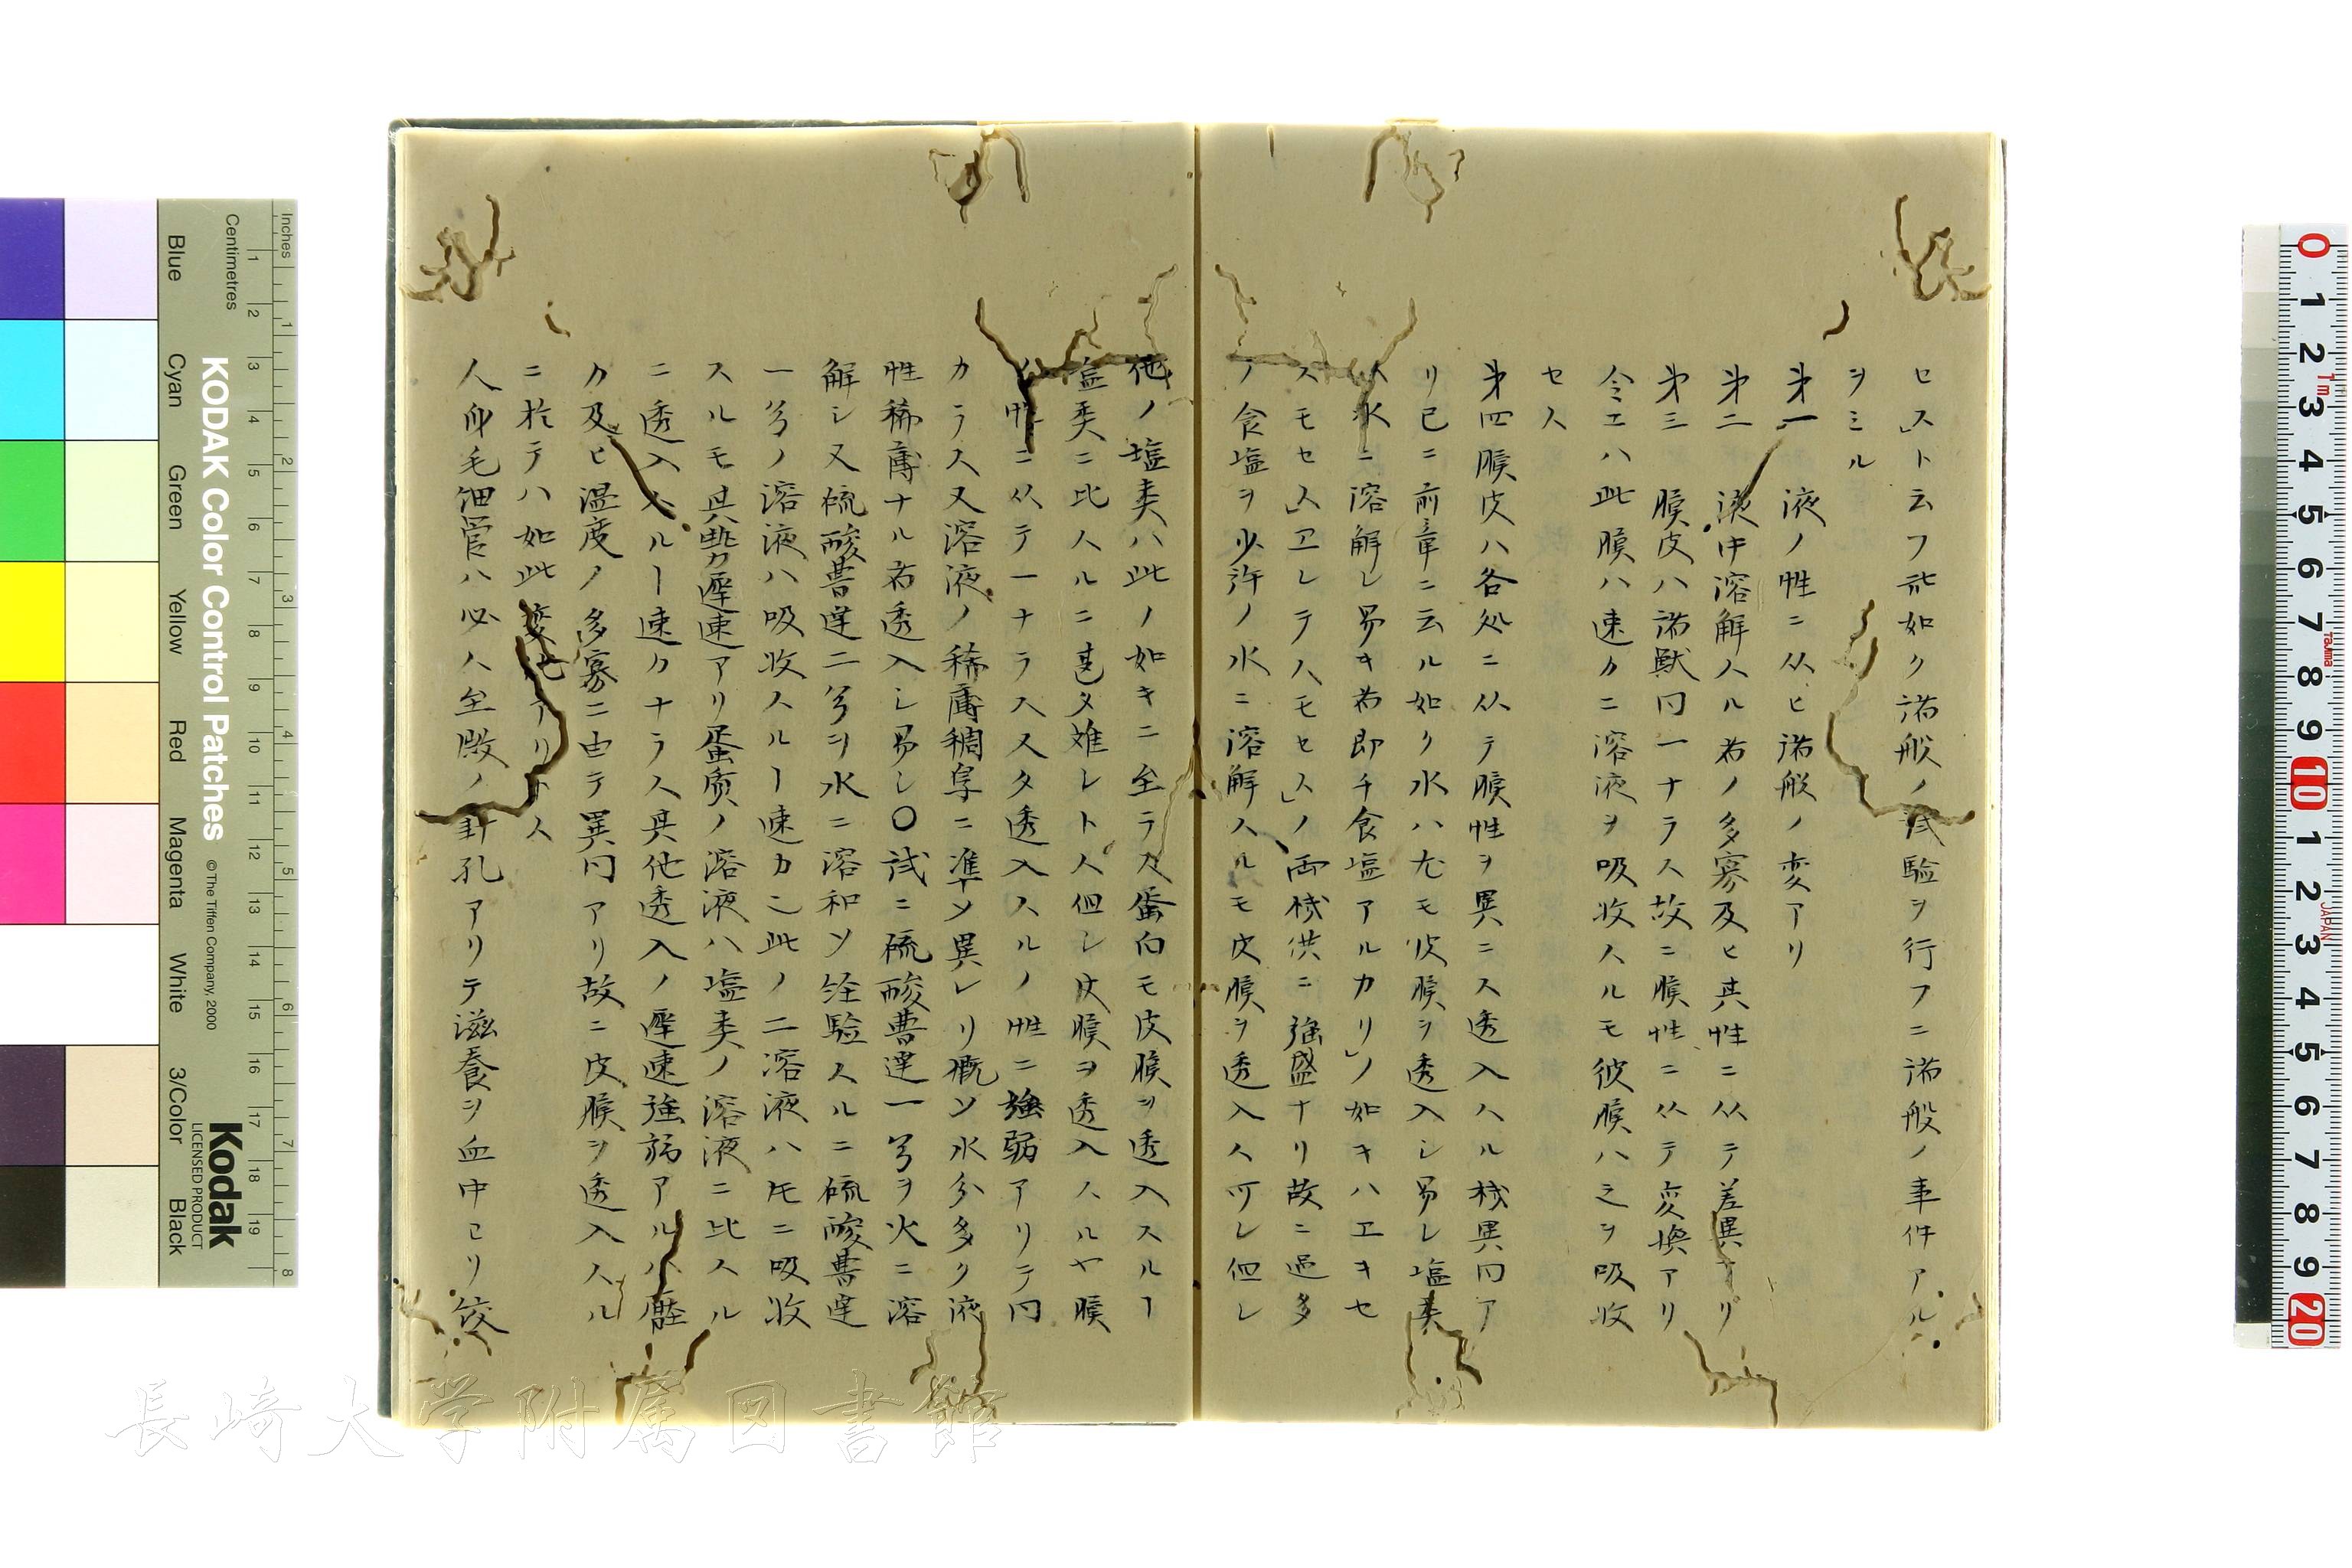 セス」ト云フ玆如ク諸般ノ試験ヲ行フニ諸般ノ事件アル
ヲミル
第一 液ノ性ニ从ヒ諸般ノ変アリ
第二 液中溶解スル者ノ多寡及ヒ其性ニ从テ差異アリ
第三 膜皮ハ諸獣同一ナラス故ニ膜性ニ从テ変換アリ
令エハ此膜ハ速カニ溶液ヲ吸収スルモ彼膜ハ之ヲ吸収
セス
第四膜皮ハ各処ニ从テ膜性ヲ異ニス透入スル機異同ア
リ已ニ前章ニ云ル如ク水ハ尤モ皮膜ヲ透入シ易レ塩類
水ニ溶解レ易キ者即チ食塩アルカリ」ノ如キハエキセ
スモセス」エレテハモセス」ノ両機供ニ強盛ナリ故ニ過多
ノ食塩ヲ少許ノ水ニ溶解スルモ皮膜ヲ透入ス可レ但レ
他ノ塩類ハ此ノ如キニ至ラス蛋白モ皮膜ヲ透入スルヿ
塩類ニ比スルニ甚タ難レトス但シ皮膜ヲ透入スルヤ膜
ノ性ニ从テ一ナラススタ透入スルノ性ニ強弱アリテ同
カラス又溶液ノ稀薄稠厚ニ準ソ異レリ概ソ水分多ク液
性稀薄ナル者透入シ易シ〇試ニ硫酸曹達一分ヲ火ニ溶
解シ又硫酸曹達二分ヲ水ニ溶和ソ経験スルニ硫酸曹達
一分ノ溶液ハ吸収スルヿ速カニ此ノ二溶液ハ死ニ吸收
スルモ其勢力遲速アリ蛋質ノ溶液ハ塩類ノ溶液ニ比スル
ニ透入スルヿ速カナラス其他透入ノ遲速強弱アルハ壓
力及ヒ温度ノ多寡ニ由テ異同アリ故ニ皮膜ヲ透入スル
ニ於テハ如此変化アリトス
人身毛細管ハ必ス至微ノ針孔アリテ滋養ヲ血中ヨリ絞
Inches
Centimetres
KODAK Color Control Patches
© The Tiffen Company, 2000
Kodak
LICENSED PRODUCT
Blue
Cyan
Green
Yellow
Red
Magenta
White
3/Color
Black
長崎大学附属図書館